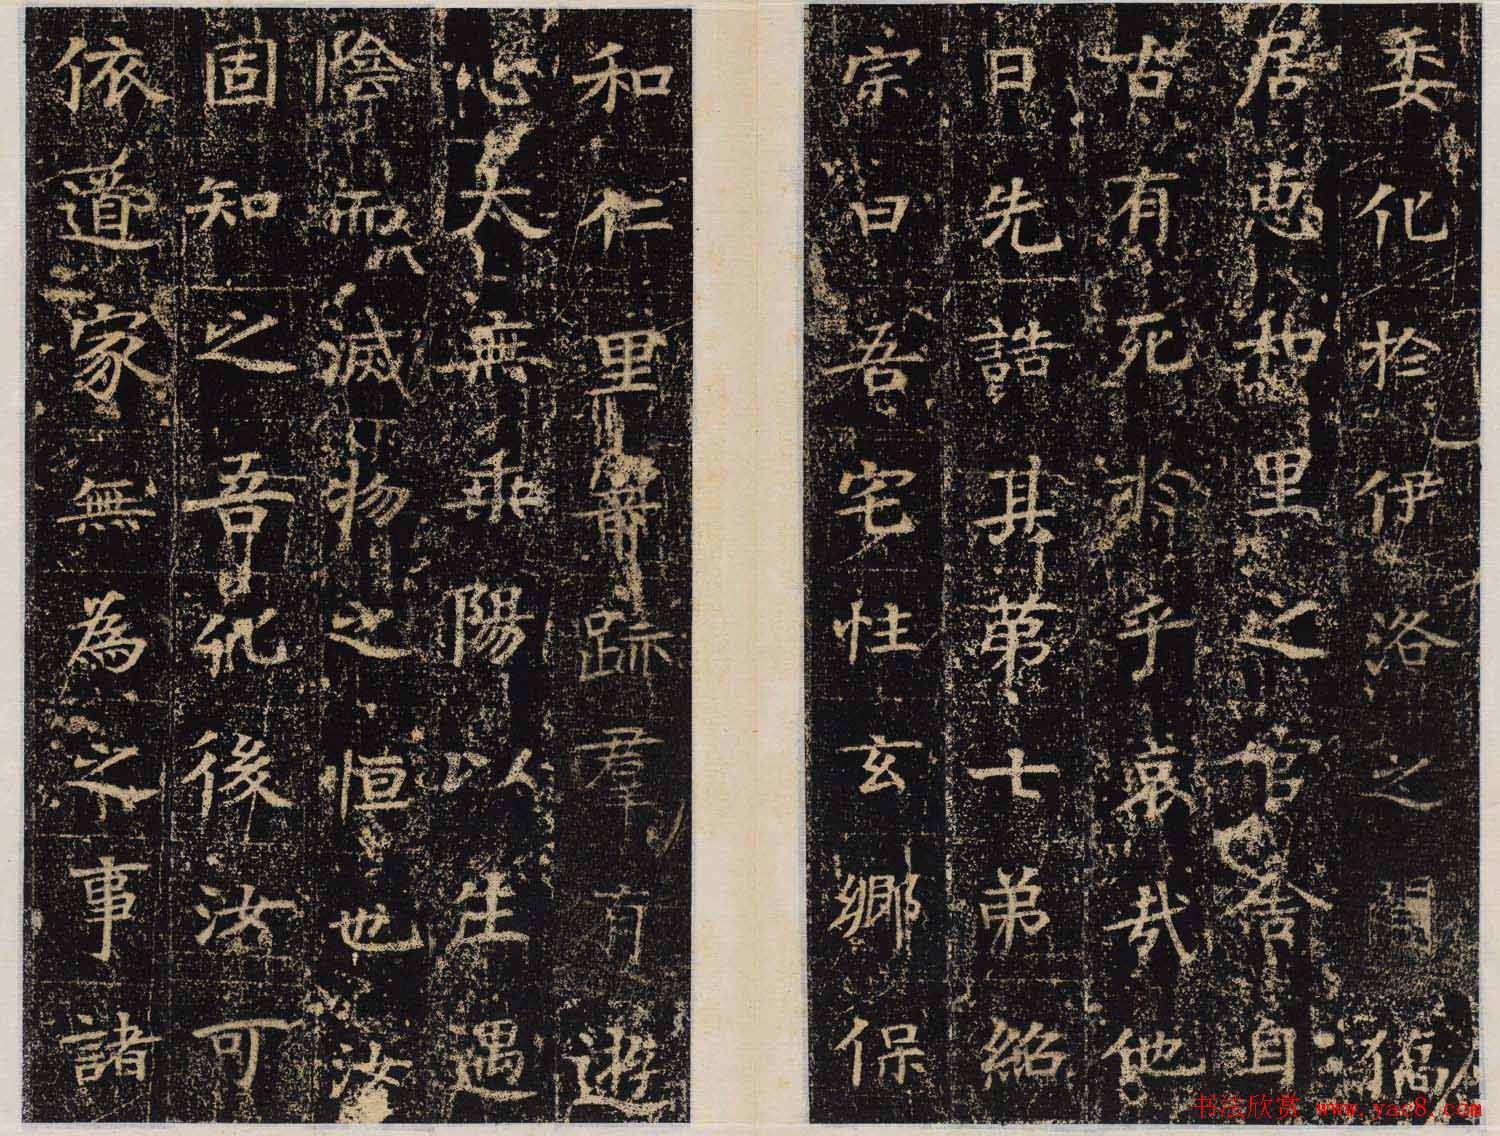 委化於伊洛之間僑
居恵和里之官舍自
古有死於乎哀哉他
日先誥其第七弟紹
宗曰吾宅性玄鄉保
和仁里跡羣有遊
心太無乘陽以生遇
陰而滅物之恒也汝
固知之吾化後汝可
依道家無為之事諸
书法欣赏 www.yac8.com